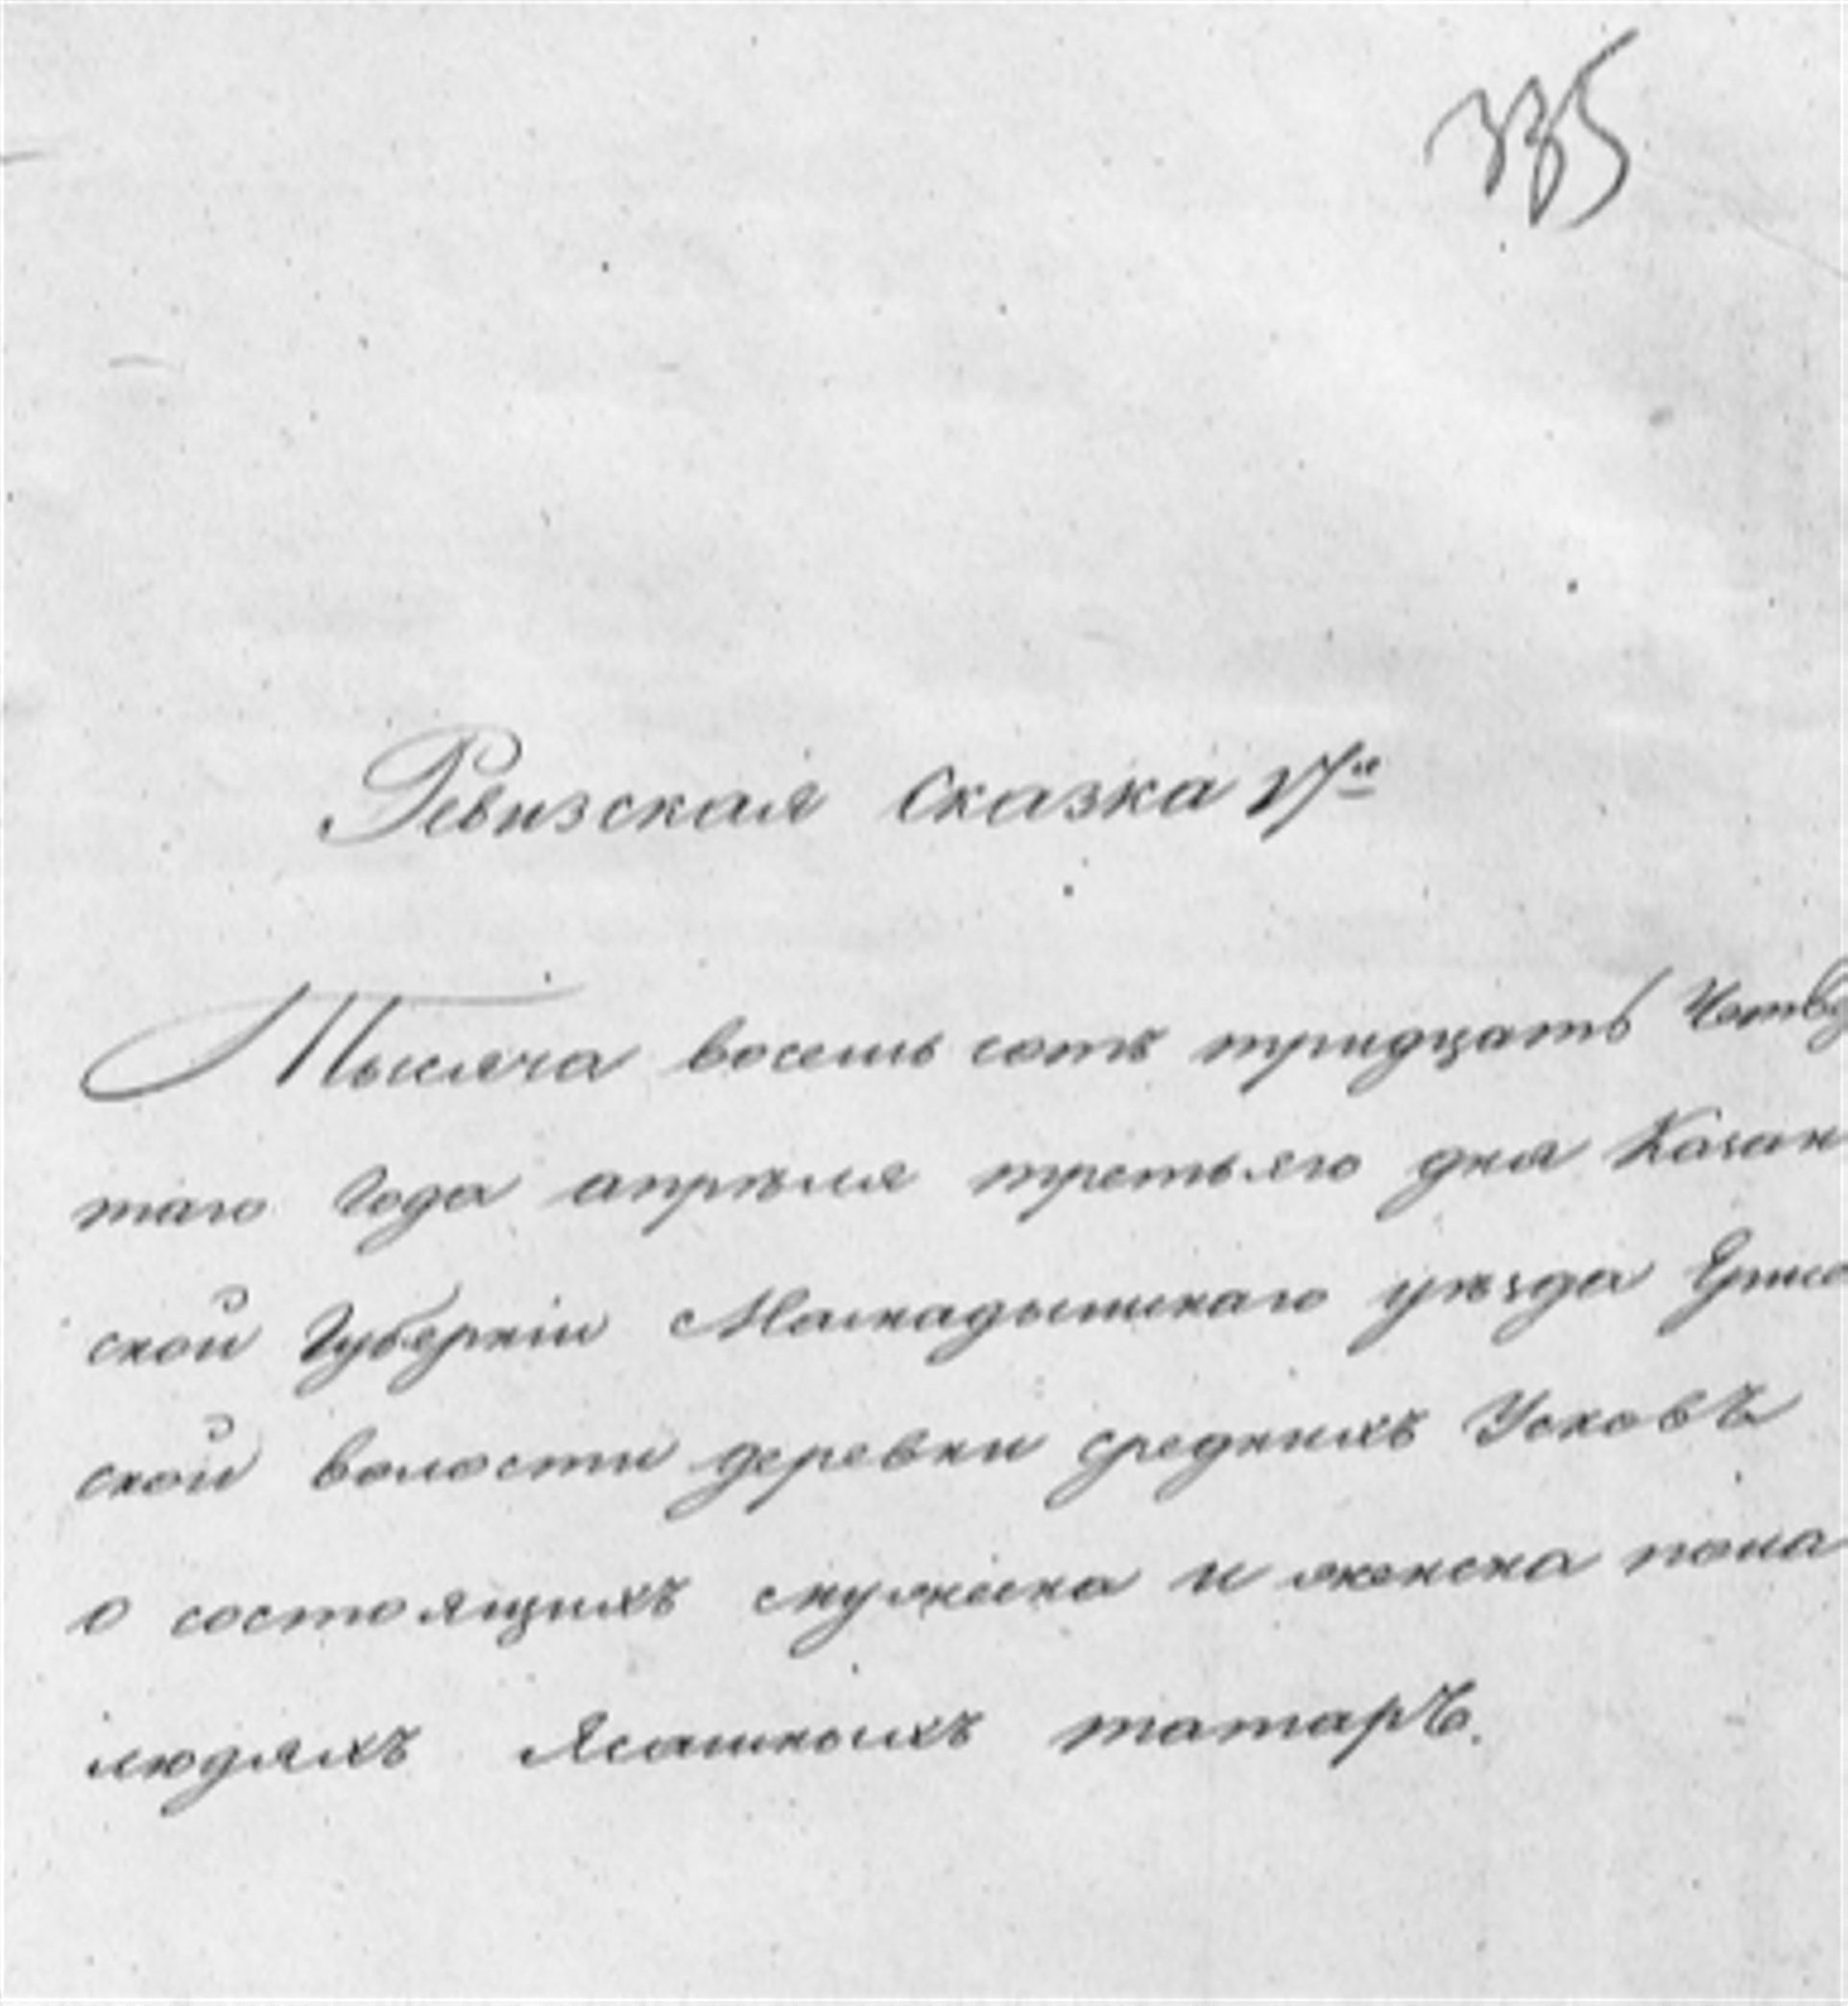 335
Ревизская Сказка
Тысяча восемь сотъ тридцать Четвер
таго Года апрѣля третьяго дня Казан
ской Губерніи Мамадышскаго уѣзда
ской волости деревни Среднихъ Усковъ
о состоящихъ мужеска и женска пола
людяхъ Ясашныхъ татаръ.